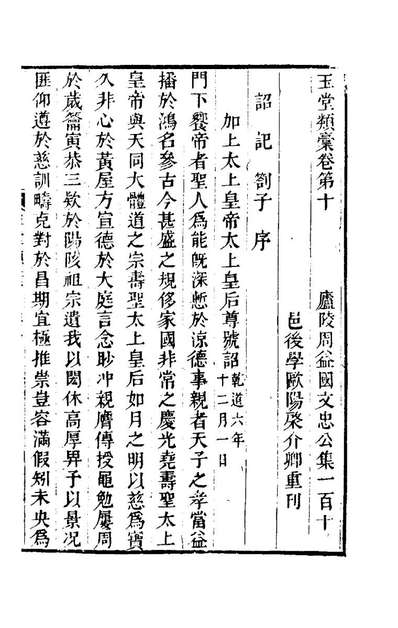 玉堂類稾卷第十　廬陵周益國文忠公集一百十
邑後學歐陽棨介卿重刊
詔　記　劄子　序
加上太上皇帝太上皇后尊號詔 乾道六年十二月一日
門下饗帝者聖人爲能旣深慙於涼德事親者天子之孝當益
播於鴻名參古今甚盛之規侈家國非常之慶光堯壽聖太上
皇帝與天同大體道之宗壽聖太上皇后如月之明以慈爲寶
久非心於黃屋方宣德於大庭言念眇冲親膺傳授黽勉屢周
於歲籥寅恭三欽於陽陔祖宗遺我以閎休高厚畀予以景况
匪仰遵於慈訓疇克對於昌期宜極推崇豈容滿假矧未央爲